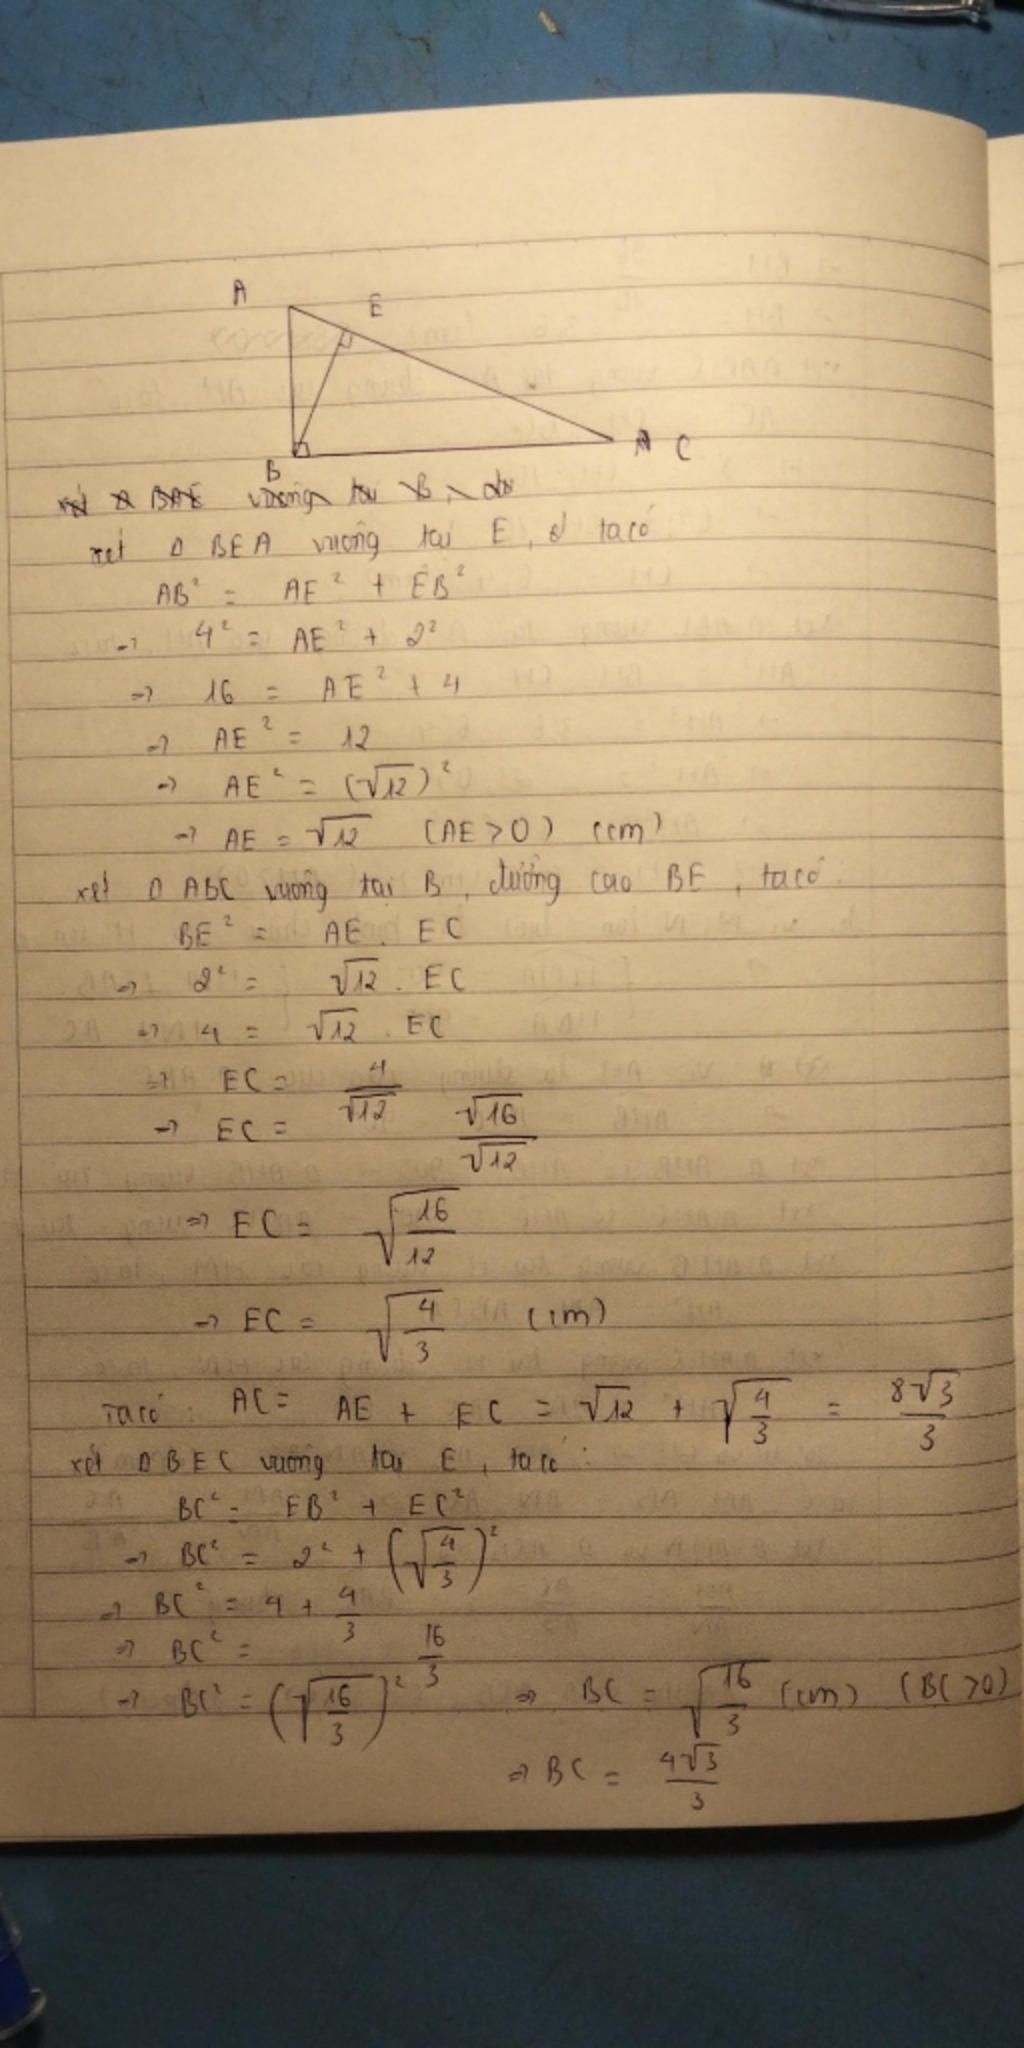 A E
B C
xét Δ BAE vuông tại B, do
xét Δ BEA vuông tại E, ta có
AB² = AE² + EB²
→ 4² = AE² + 2²
→ 16 = AE² + 4
→ AE² = 12
→ AE² = (√12)²
→ AE = √12 (AE > 0) (cm)
xét Δ ABC vuông tại B, đường cao BE, ta có:
BE² = AE. EC
→ 2² = √12 . EC
→ 4 = √12 . EC
→ EC = 4/√12
→ EC = √16/√12
→ EC = √(16/12)
→ EC = √(4/3) (cm)
Ta có: AC = AE + EC = √12 + √(4/3) = 8√3/3
xét Δ BEC vuông tại E, ta có:
BC² = EB² + EC²
→ BC² = 2² + (√(4/3))²
→ BC² = 4 + 4/3
→ BC² = 16/3
→ BC² = (√(16/3))² → BC = √(16/3) (cm) (BC > 0)
→ BC = 4√3/3